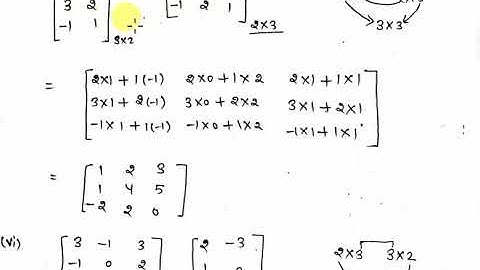 3 2
-1 1 3×2 -1 2 1 2×3 3×3
= 2×1 + 1(-1) 2×0 + 1×2 2×1 + 1×1
3×1 + 2(-1) 3×0 + 2×2 3×1 + 2×1
-1×1 + 1(-1) -1×0 + 1×2 -1×1 + 1×1
= 1 2 3
1 4 5
-2 2 0
(vi) 3 -1 3 2 -3 2×3 3×2
-1 0 2